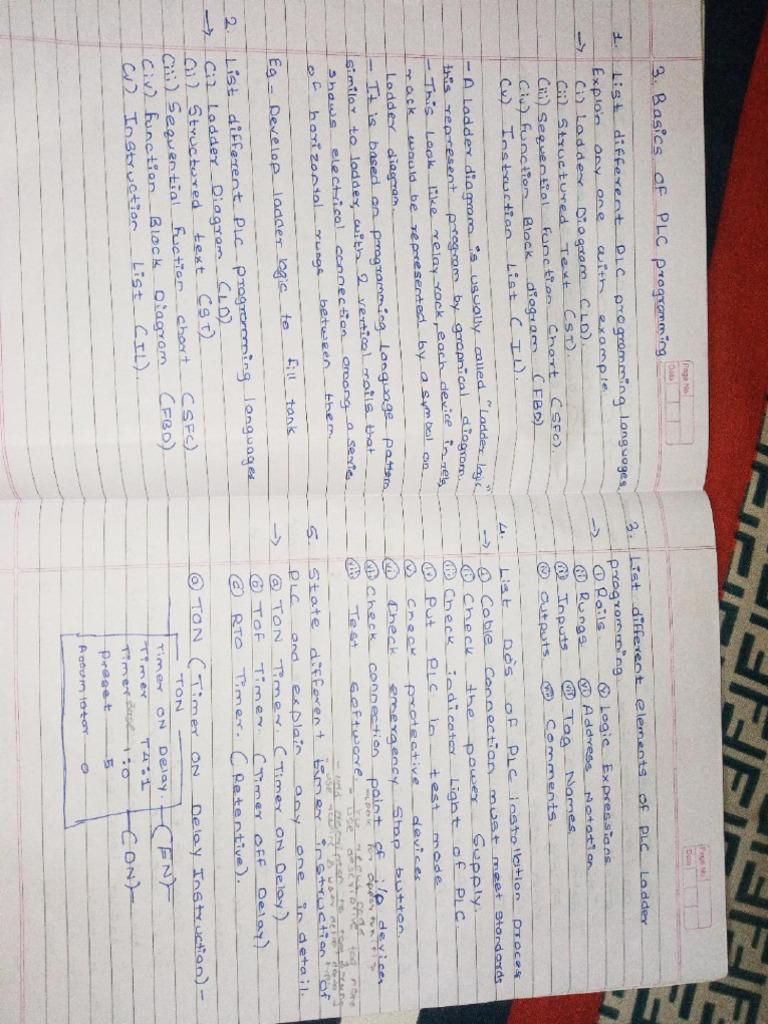 Page No.
Date
3. Basics of PLC programming
1. List different PLC programming languages.
Explain any one with example
→ (i) Ladder Diagram (LD).
(ii) Structured Text (ST)
(iii) Sequential Function Chart (SFC)
(iv) Function Block diagram (FBD)
(v) Instruction List (IL).
- A ladder diagram is usually called "Ladder logic"
this represent program by graphical diagram.
- This Look like relay rack, each device in
rack would be represented by a symbol on
ladder diagram.
- It is based on programming language pattern
similar to ladder, with 2 vertical rails that
shows electrical connection among a series
of horizontal rungs between them.
Eg - Develop ladder logic to fill tank
2. List different PLC programming languages
→ (i) Ladder Diagram (LD)
(ii) Structured text (ST)
(iii) Sequential Fuction chart (SFC)
(iv) Function Block Diagram (FBD)
(v) Instruction List (IL).
Page No.
Date
3. List different elements of PLC Ladder
programming.
→ (i) Rails (v) Logic Expressions
(ii) Rungs (vi) Address Notation
(iii) Inputs (vii) Tag Names
(iv) Outputs (viii) Comments.
4. List Do's of PLC installation Proces
→ (i) Cable Connection must meet Standards
(ii) Check the power Supply.
(iii) Check indicator Light of PLC.
(iv) Put PLC in test mode
(v) Check protective devices
(vi) Check emergency Stop button.
(vii) Check connection point of i/p devices
(viii) Test Software.
5. State different timer instruction of
PLC and explain any one in detail.
→ (a) TON Timer. (Timer ON Delay)
(b) TOF Timer. (Timer OFF Delay)
(c) RTO Timer. (Retentive).
(a) TON (Timer ON Delay Instruction) -
TON
Timer ON Delay. (EN)
Timer T4:1
Timer base 1:0 (DN)
preset 5
Accumulator 0